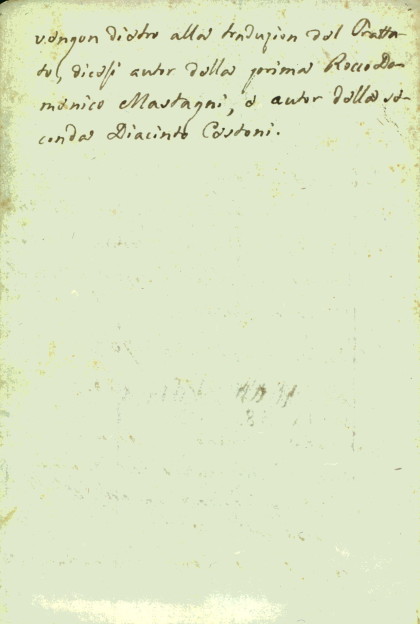 vengon dietro alla traduzion del Tratta-
to, dicesi autor della prima Rocco Do-
menico Mastagni, e autor della se-
conda Diacinto Cestoni.